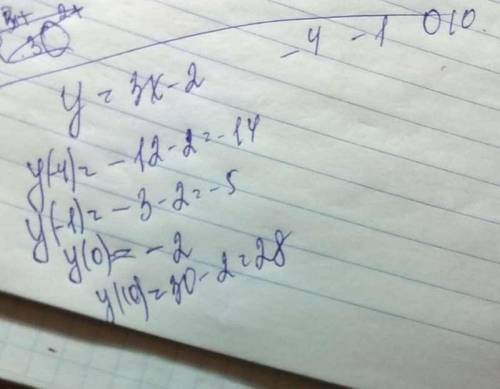 -4 -1 0 10
y = 3x - 2
y(-4) = -12 - 2 = -14
y(-1) = -3 - 2 = -5
y(0) = -2
y(10) = 30 - 2 = 28